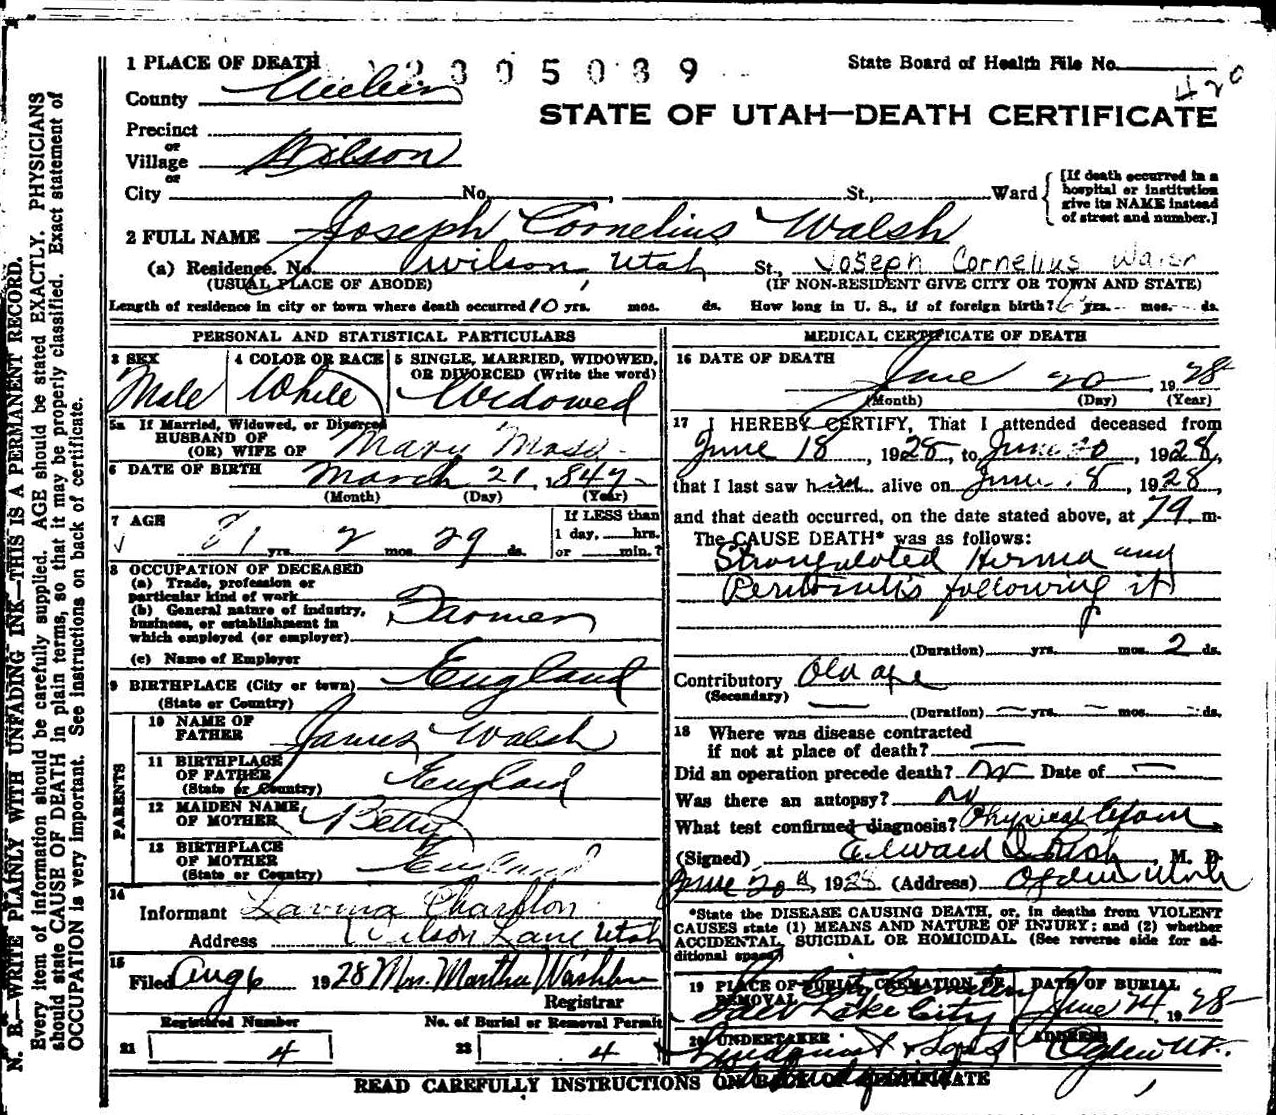 N. B.—WRITE PLAINLY WITH UNFADING INK—THIS IS A PERMANENT RECORD.
Every item of information should be carefully supplied. AGE should be stated EXACTLY. PHYSICIANS
should state CAUSE OF DEATH in plain terms, so that it may be properly classified. Exact statement of
OCCUPATION is very important. See instructions on back of certificate.
1 PLACE OF DEATH 2305039 State Board of Health File No.
420
County Weber
STATE OF UTAH—DEATH CERTIFICATE
Precinct
or
Village Wilson
or
City No. , St., Ward
[If death occurred in a
hospital or institution
give its NAME instead
of street and number.]
2 FULL NAME Joseph Cornelius Walsh
(a) Residence. No. Wilson, Utah St., Joseph Cornelius
(USUAL PLACE OF ABODE) (IF NON-RESIDENT GIVE CITY OR TOWN AND STATE)
Length of residence in city or town where death occurred 10 yrs. mos. ds. How long in U. S., if of foreign birth? yrs. mos. ds.
PERSONAL AND STATISTICAL PARTICULARS
3 SEX
Male
4 COLOR OR RACE
White
5 SINGLE, MARRIED, WIDOWED,
OR DIVORCED (Write the word)
Widowed
5a If Married, Widowed, or Divorced
HUSBAND OF
(OR) WIFE OF Mary
6 DATE OF BIRTH March 21, 1847
(Month) (Day) (Year)
7 AGE
81 yrs. 2 mos. 29 ds.
If LESS than
1 day, hrs.
or min.?
8 OCCUPATION OF DECEASED
(a) Trade, profession or
particular kind of work
(b) General nature of industry,
business, or establishment in
which employed (or employer)
Farmer
(c) Name of Employer
9 BIRTHPLACE (City or town) England
(State or Country)
PARENTS
10 NAME OF
FATHER James Walsh
11 BIRTHPLACE
OF FATHER England
(State or Country)
12 MAIDEN NAME
OF MOTHER Betty
13 BIRTHPLACE
OF MOTHER England
(State or Country)
14
Informant Lavina Charlton
Address Wilson Lane Utah
15
Filed Aug 6 1928 Mrs. Martha
Registrar
Registered Number No. of Burial or Removal Permit
21 4 22 4
MEDICAL CERTIFICATE OF DEATH
16 DATE OF DEATH
June 20 1928
(Month) (Day) (Year)
17 I HEREBY CERTIFY, That I attended deceased from
June 18, 1928, to June 20, 1928,
that I last saw him alive on June 18, 1928,
and that death occurred, on the date stated above, at m.
The CAUSE DEATH* was as follows:
Strangulated Hernia and
Peritonitis following it
(Duration) yrs. mos. 2 ds.
Contributory Old age
(Secondary)
(Duration) yrs. mos. ds.
18 Where was disease contracted
if not at place of death?
Did an operation precede death? No Date of
Was there an autopsy? No
What test confirmed diagnosis? Physical Exam
(Signed) Edward I. Rich, M. D.
June 20 1928 (Address) Ogden Utah
*State the DISEASE CAUSING DEATH, or, in deaths from VIOLENT
CAUSES state (1) MEANS AND NATURE OF INJURY; and (2) whether
ACCIDENTAL, SUICIDAL OR HOMICIDAL. (See reverse side for ad-
ditional space)
19 PLACE OF BURIAL, CREMATION OR
REMOVAL City Cemetery
Salt Lake City
DATE OF BURIAL
June 24, 1928
20 UNDERTAKER
& Sons
ADDRESS
Ogden Ut.
READ CAREFULLY INSTRUCTIONS ON BACK OF CERTIFICATE